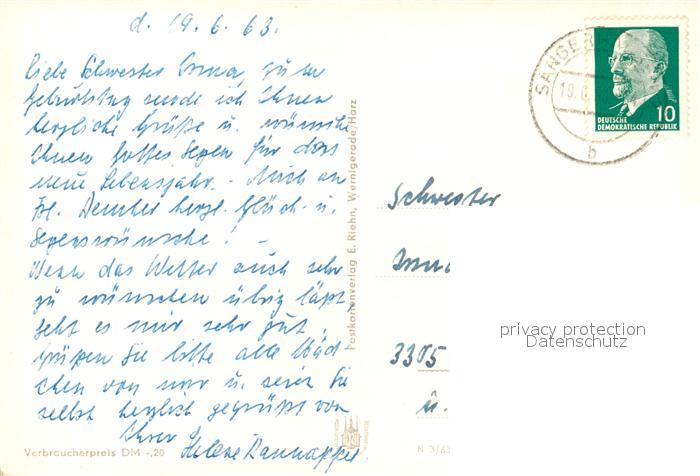 d. 19.6.63.
Liebe Schwester Irma, zum
Geburtstag sende ich Ihnen
herzliche Grüße u. wünsche
Ihnen Gottes Segen für das
neue Lebensjahr. - Auch an
Frl. herzl. Glück- u.
Segenswünsche! -
Wenn das Wetter auch sehr
zu wünschen übrig läßt,
geht es mir sehr gut.
Grüßen Sie bitte alle Mäd-
chen von mir u. seien Sie
selbst herzlich gegrüßt von
Ihrer Helene
Verbraucherpreis DM -,20
Postkartenverlag E. Riehn, Wernigerode/Harz
N 3/63
SANGER
19.6
b
10
DEUTSCHE
DEMOKRATISCHE REPUBLIK
Schwester
Irma
3305
u.
privacy protection
Datenschutz